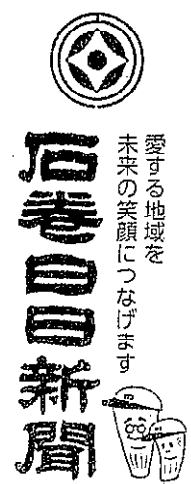 愛する地域を
未来の笑顔につなげます
石巻日日新聞